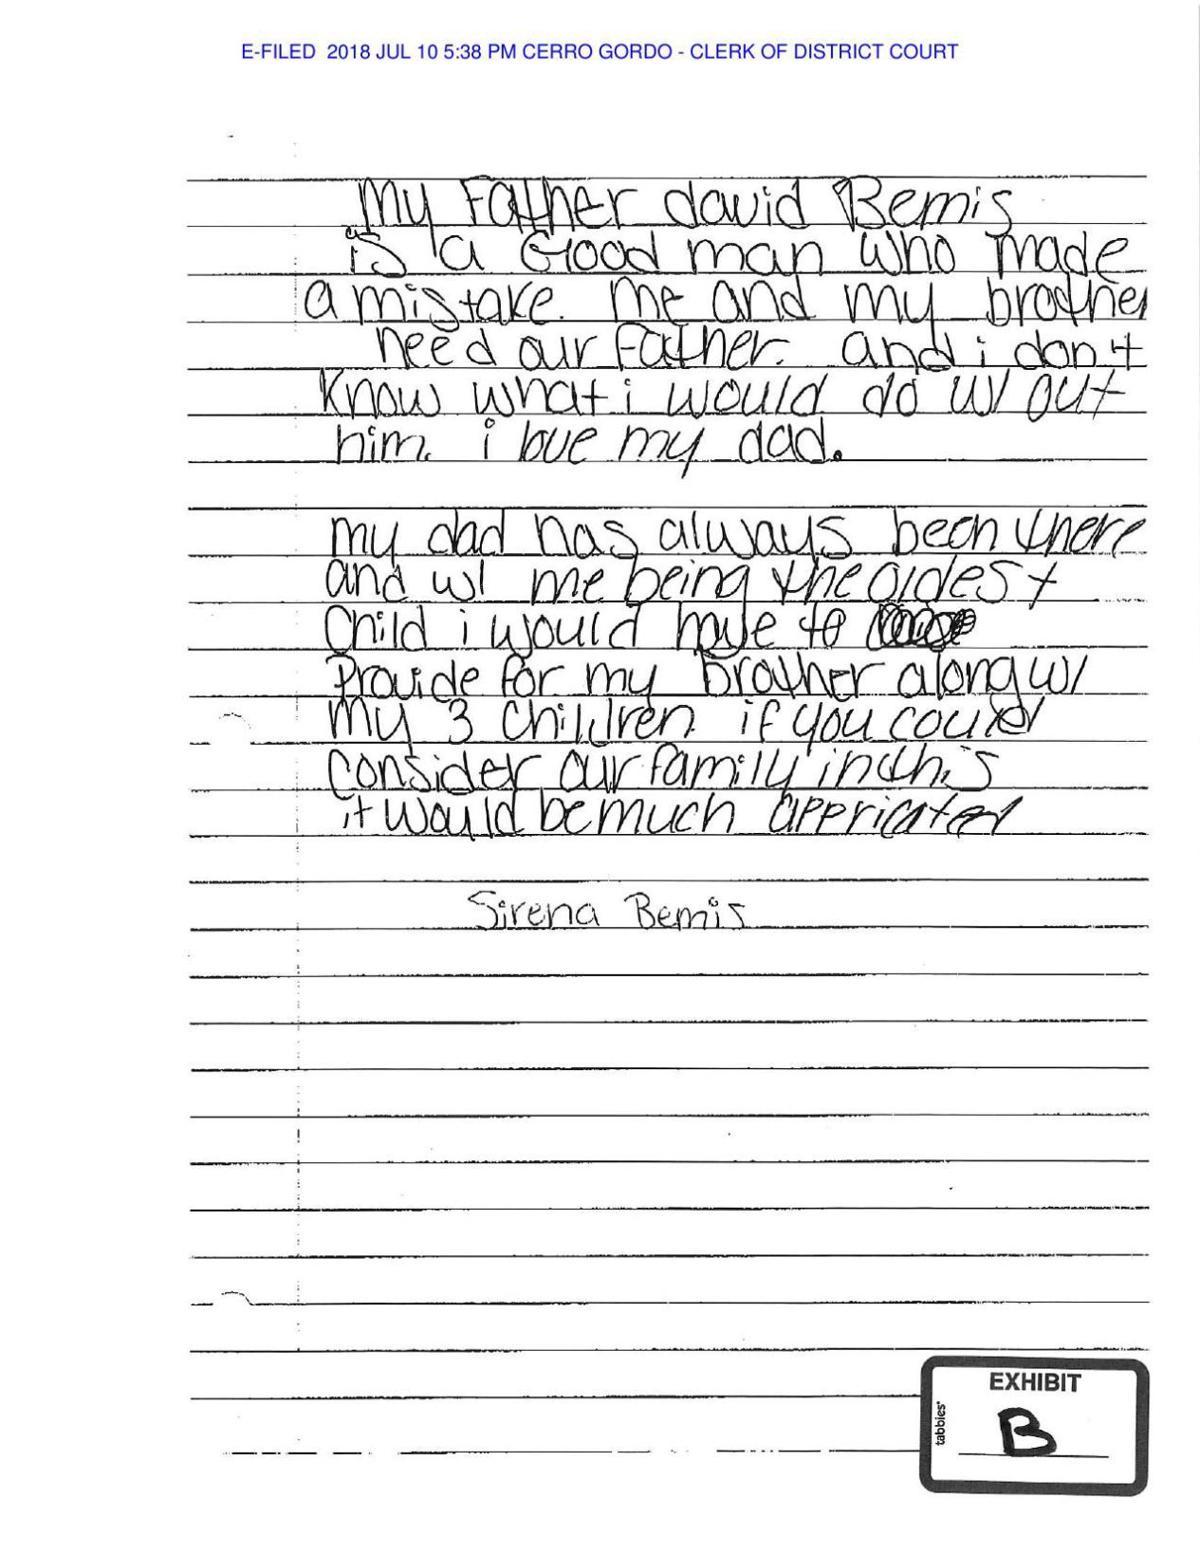 E-FILED 2018 JUL 10 5:38 PM CERRO GORDO - CLERK OF DISTRICT COURT
My Father david Bemis
is a Good man who made
a mistake. me and my brother
need our Father. and i don't
know what i would do w/ out
him. i love my dad.
my dad has always been there
and w/ me being the oldest
child i would have to
Provide for my brother along w/
my 3 children. if you could
consider our family in this
it would be much appricated
Sirena Bemis
EXHIBIT
tabbies'
B